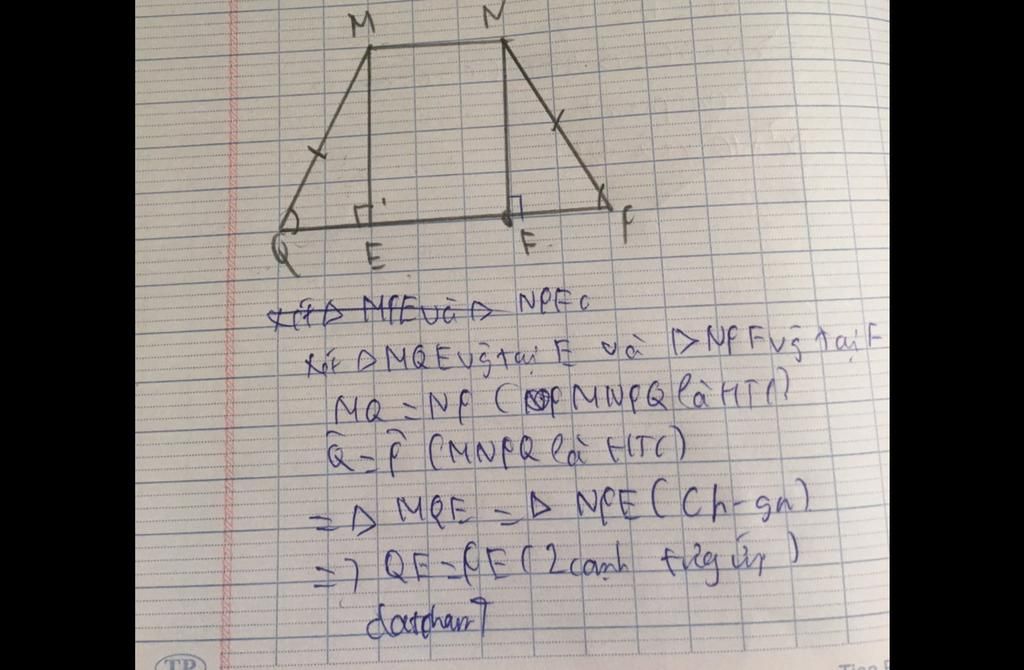 M N
Q E F P
Xét △ MPE và △ NPE
Xét △MQE vg tại E và △NPF vg tại F
MQ = NP ( MNPQ là HTC)
Q̂ = P̂ (MNPQ là HTC)
=> △ MQE = △ NPE (Ch-gn)
=> QE = PE (2 cạnh tứg ứg)
TP